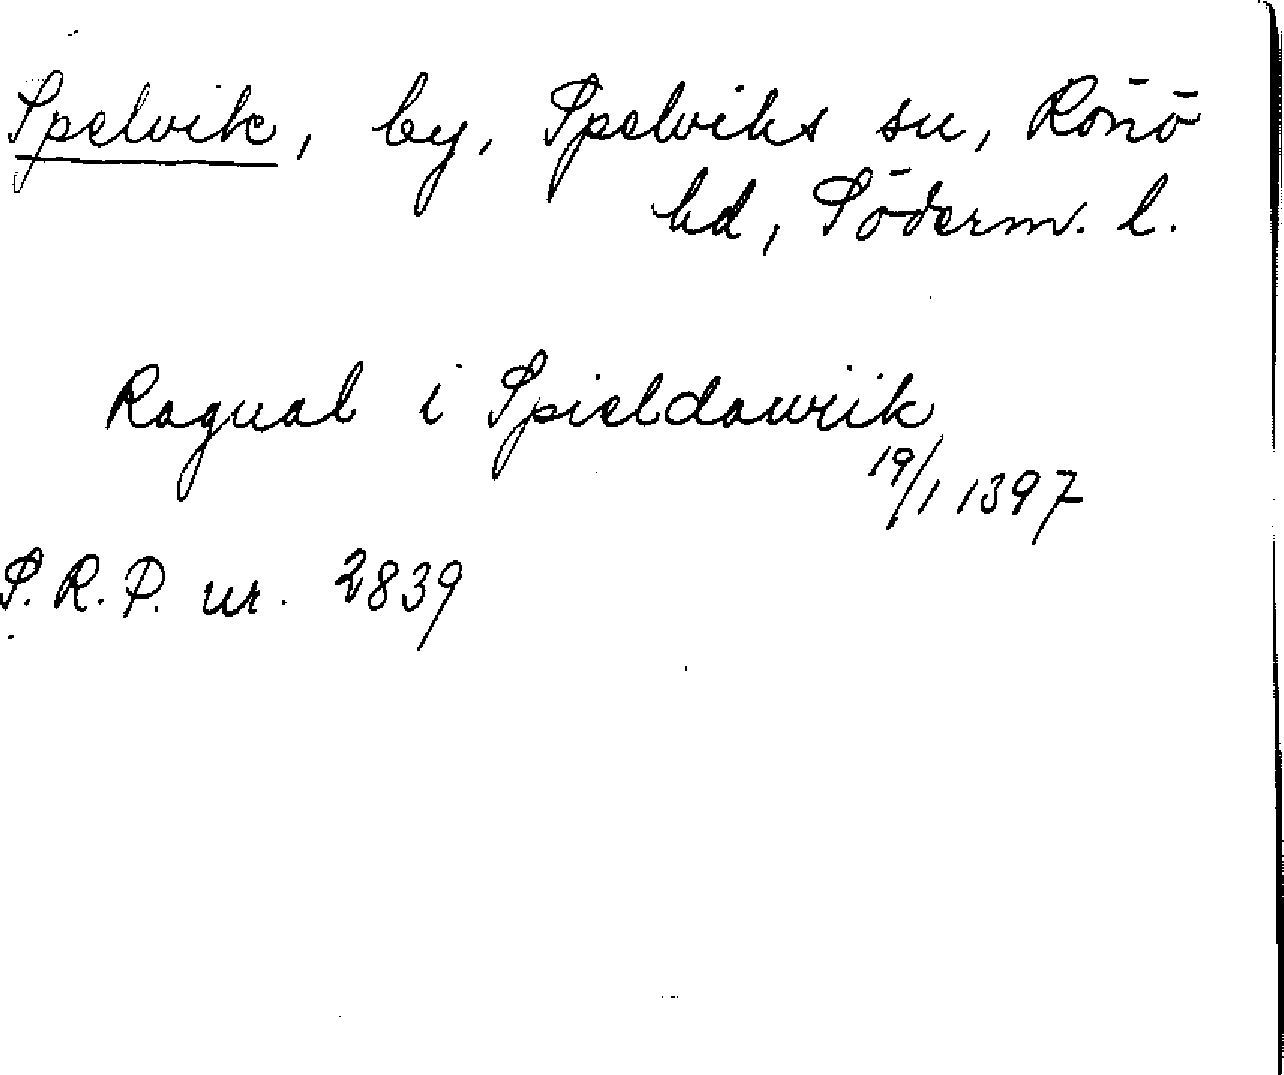 Spelvik, by, Spelviks sn, Rönö
hd, Söderm. l.
Ragual i Spieldawiik
19/1 1397
S.R.P. nr. 2839